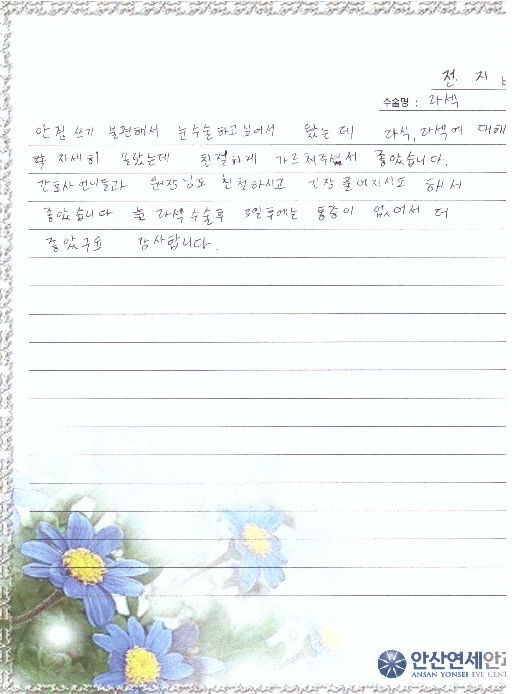 전 지
수술명 : 라섹
안경 쓰기 불편해서 눈수술하고싶어서 왔는데 라식, 라섹에 대해
자세히 몰랐는데 친절하게 가르쳐주셔서 좋았습니다.
간호사언니들과 원장님도 친절하시고 긴장 풀어지시도 해서
좋았습니다 눈 라섹수술후 3일후에는 통증이 없어서 더
좋았구요 감사합니다.
안산연세안과
ANSAN YONSEI EYE CENT